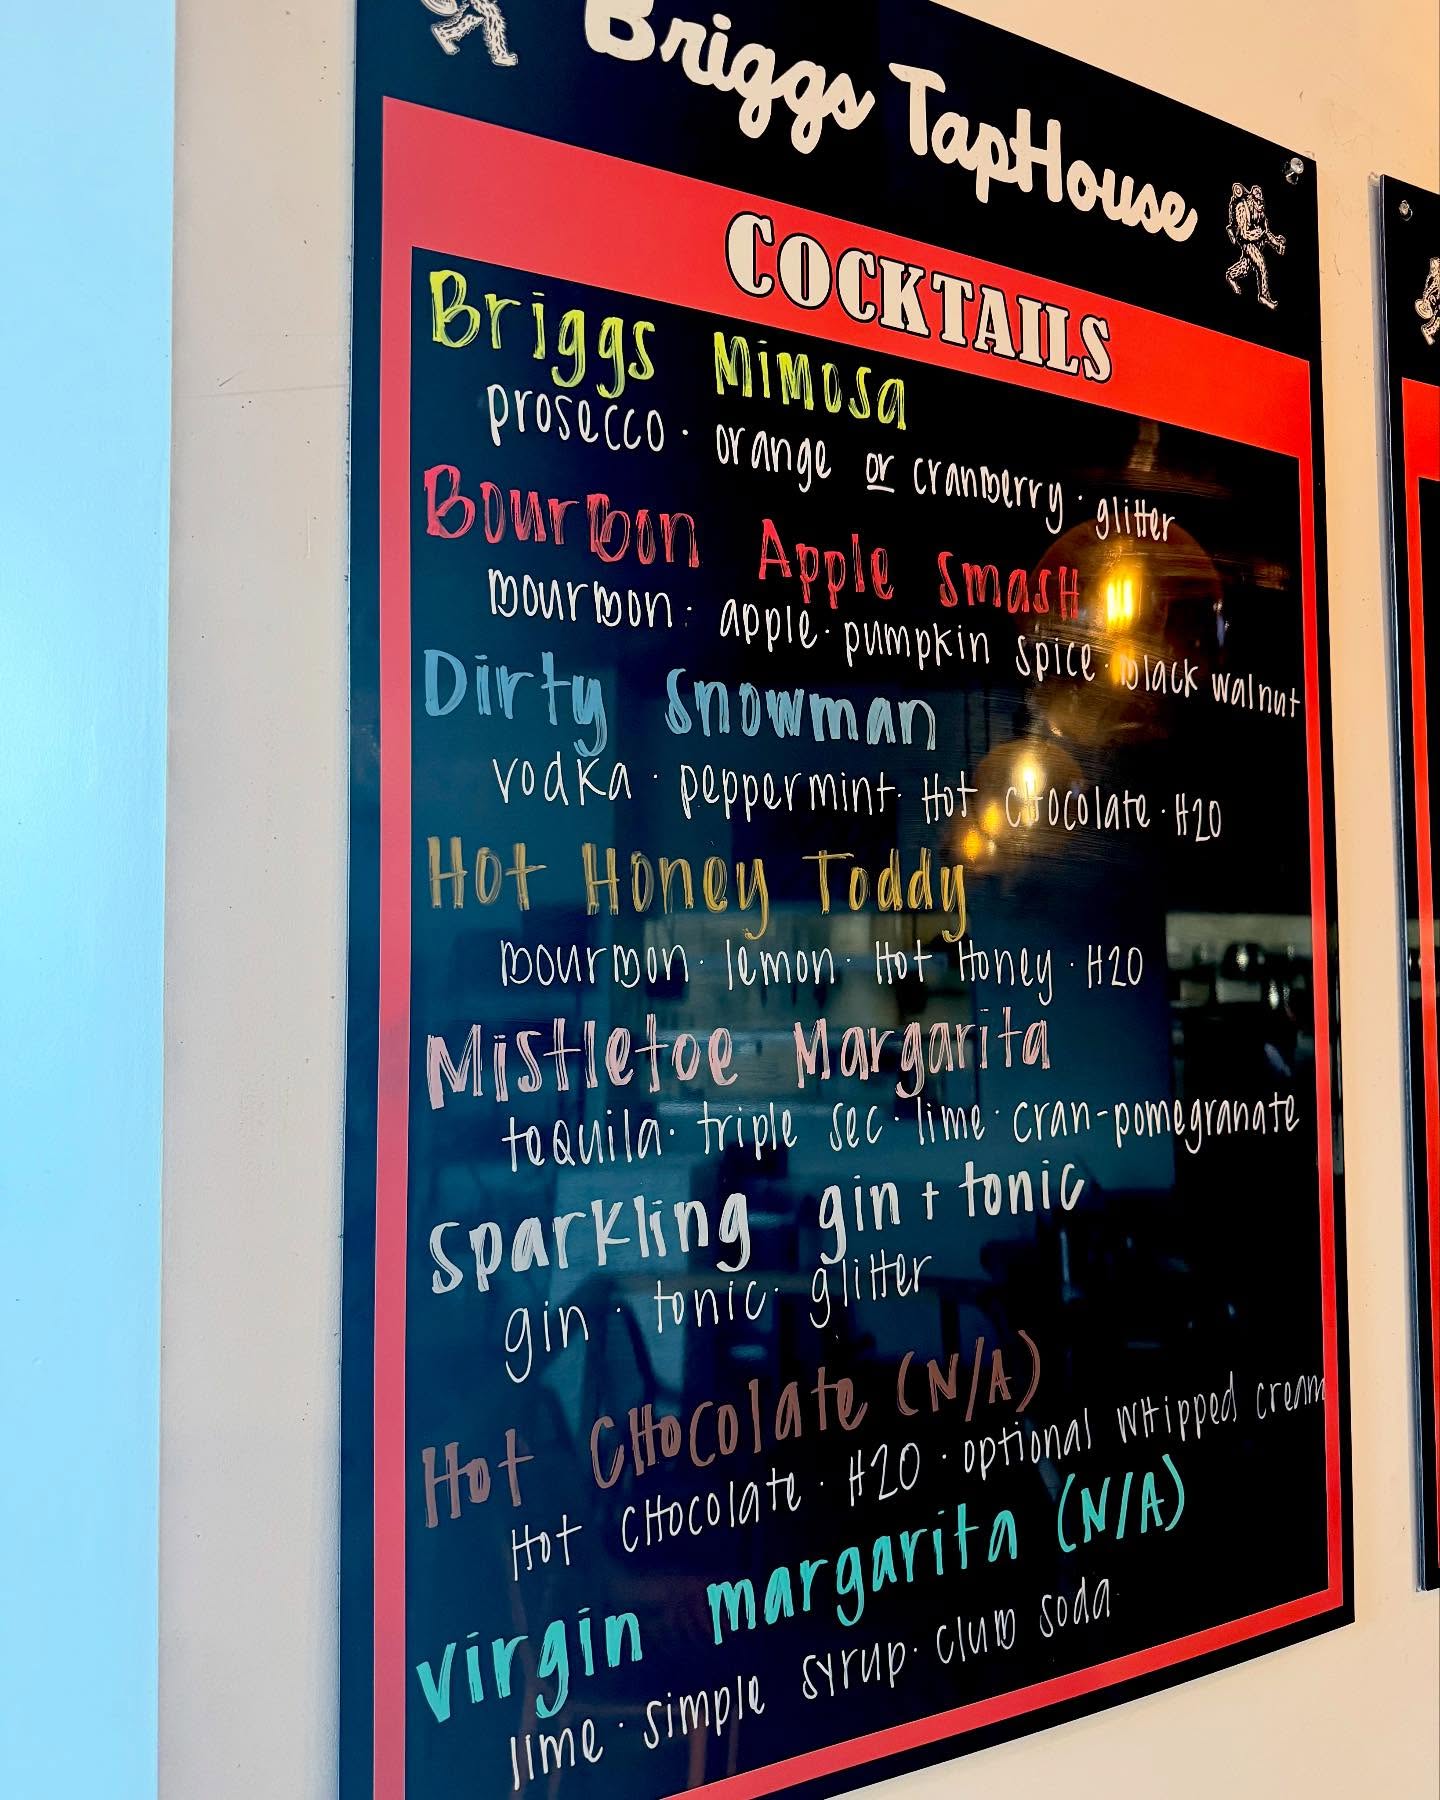 Briggs TapHouse
COCKTAILS
Briggs Mimosa
prosecco · orange or cranberry · glitter
Bourbon Apple Smash
bourbon · apple · pumpkin spice · black walnut
Dirty Snowman
vodka · peppermint · Hot CHocolate · H20
Hot Honey Toddy
bourbon · lemon · Hot Honey · H20
Mistletoe Margarita
tequila · triple sec · lime · cran-pomegranate
Sparkling gin + tonic
gin · tonic · glitter
Hot CHocolate (N/A)
Hot CHocolate · H20 · optional wHipped cream
virgin margarita (N/A)
lime · simple syrup · club soda